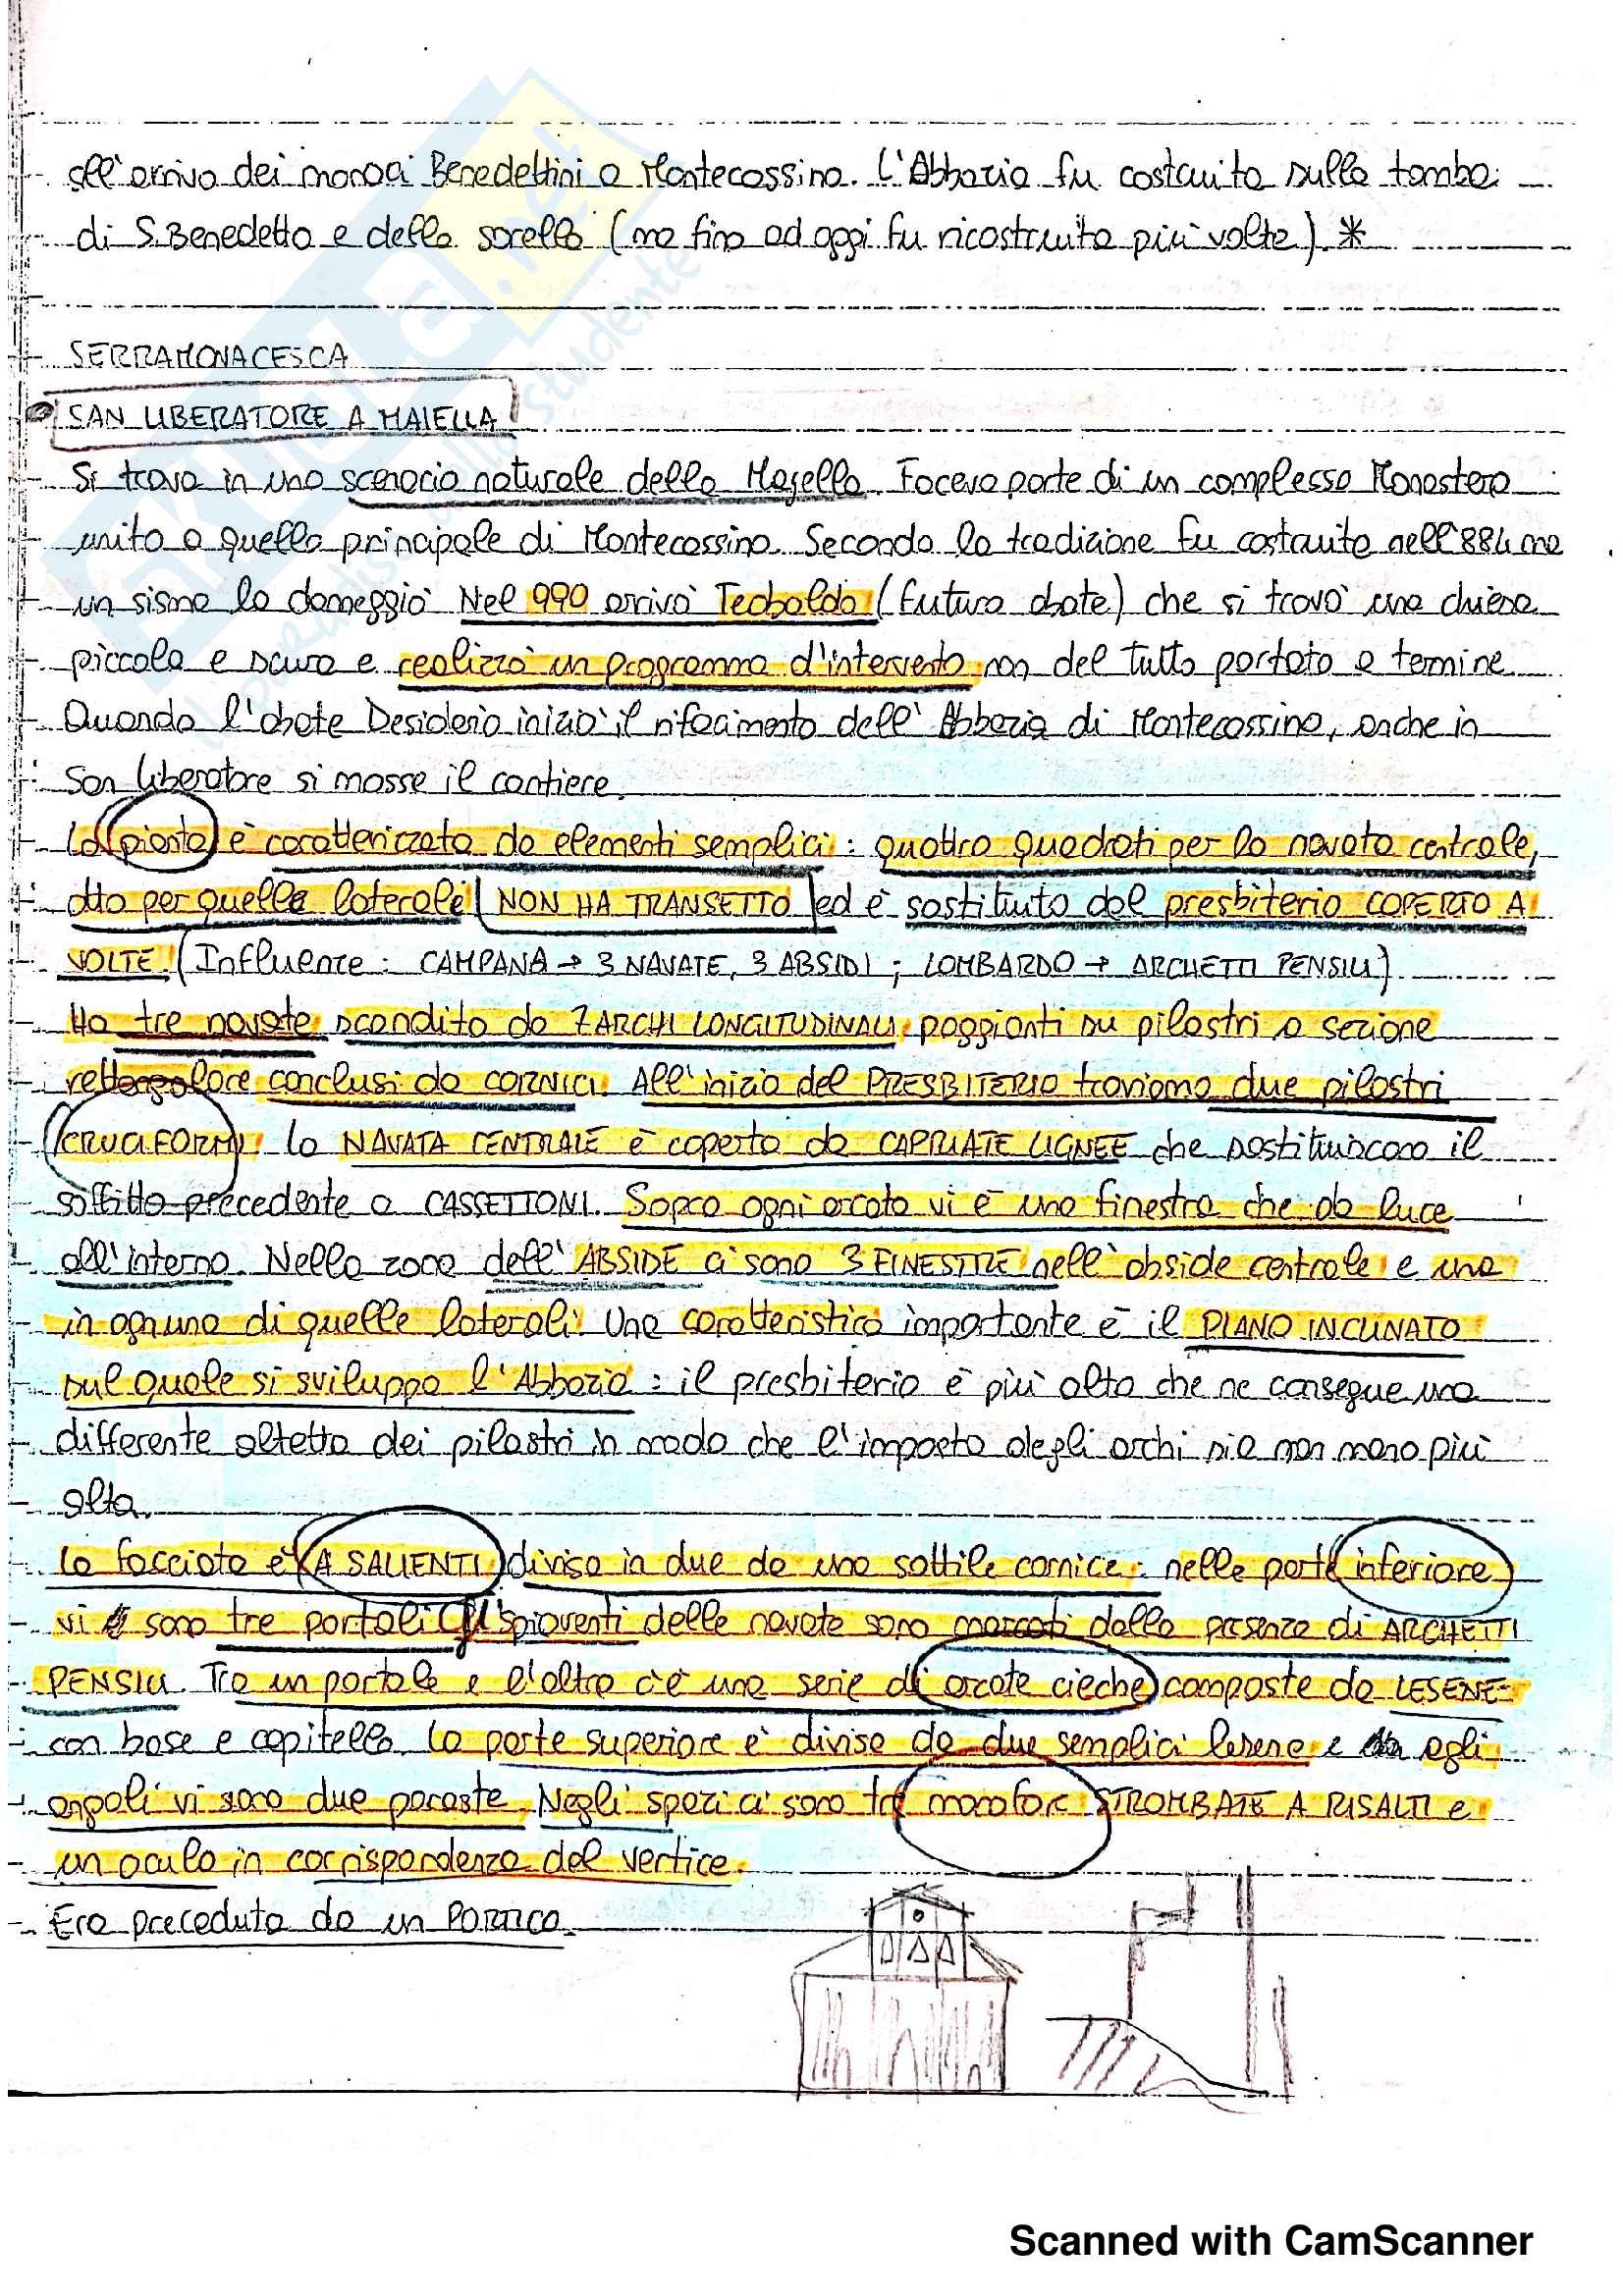 all'arrivo dei monaci Benedettini a Montecassino. L'Abbazia fu costruita sulla tomba
di S.Benedetto e della sorella (ma fino ad oggi fu ricostruita più volte). *
SERRAMONACESCA
SAN LIBERATORE A MAIELLA
Si trova in uno scenario naturale della Majella. Faceva parte di un complesso Monastero
unito a quello principale di Montecassino. Secondo la tradizione fu costruito nell'884 ma
un sisma lo danneggiò. Nel 990 arrivò Teobaldo (futuro abate) che si trovò una chiesa
piccola e scura e realizzò un programma d'intervento non del tutto portato a termine.
Quando l'abate Desiderio iniziò il rifacimento dell'Abbazia di Montecassino, anche in
San Liberatore si mosse il cantiere.
La pianta è caratterizzata da elementi semplici: quattro quadrati per la navata centrale,
otto per quelle laterali (NON HA TRANSETTO) ed è sostituito dal presbiterio COPERTO A
VOLTE. (Influenze: CAMPANA → 3 NAVATE, 3 ABSIDI; LOMBARDO → ARCHETTI PENSILI)
Ha tre navate scandito da 7 ARCHI LONGITUDINALI, poggianti su pilastri a sezione
rettangolare conclusi da CORNICI. All'inizio del PRESBITERIO troviamo due pilastri
CRUCIFORMI. La NAVATA CENTRALE è coperta da CAPRIATE LIGNEE che sostituiscono il
soffitto precedente a CASSETTONI. Sopra ogni arcata vi è una finestra che dà luce
all'interno. Nella zona dell'ABSIDE ci sono 3 FINESTRE nell'abside centrale e una
in ognuna di quelle laterali. Una caratteristica importante è il PIANO INCLINATO
sul quale si sviluppa l'Abbazia: il presbiterio è più alto che ne consegue una
differente altetta dei pilastri in modo che l'imposta degli archi sia man mano più
alta.
La facciata è A SALIENTI divisa in due da una sottile cornice: nella parte inferiore
vi sono tre portali. Gli spioventi delle navate sono marcati dalla presenza di ARCHETTI
PENSILI. Tra un portale e l'altro c'è una serie di arcate cieche composte da LESENE
con base e capitello. La parte superiore è divisa da due semplici lesene e agli
angoli vi sono due paraste. Negli spazi ci sono tre monofore STROMBATE A RISALTI e
un oculo in corrispondenza del vertice.
Era preceduta da un PORTICO.
Scanned with CamScanner